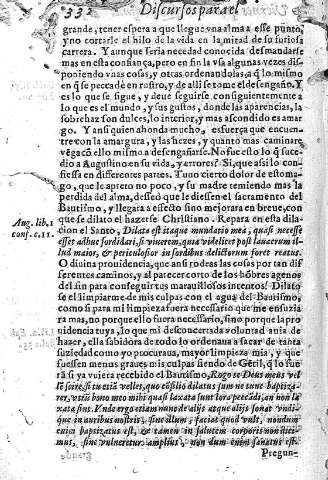 332 Discursos para el
grande, tener espera a que llegue vna alma a esse punto,
y no cortarle el hilo de la vida en la mitad de su furiosa
carrera. Y aunque seria necedad conocida desmandarse
mas en esta confiança, pero en fin la vsa algunas vezes dis-
poniendo vnas cosas, y otras ordenandolas, a q̃ lo mismo
en q̃ se peca dè en rostro, y de alli se tome el desengaño. Y
es lo que se sigue, y deue seguirse consiguientemente a
lo que es el mundo, y sus gustos, donde las apariencias, la
sobrehaz son dulces, lo interior, y mas ascondido es amar-
go. Y ansi quien ahonda mucho, esfuerça que encuen-
tre con la amargura, y las hezes, y quanto mas caminare
vẽga cõ ello mismo a desengañarse. No fue esto lo q̃ suce-
dio a Augustino en su vida, y errores? Si, que assi lo con-
fiessa en differentes partes. Tuuo cierto dolor de estoma-
go, que le apreto no poco, y su madre temiendo mas la
perdida del alma, desseò que le diessen el sacramento del
Bautismo, y llegara a esto sino mejorara en breue, con
que se dilato el hazerse Christiano. Repara en esta dila-
Aug. lib. 1 conf. c. 11.
cion el Santo, Dilata est itaque mundatio mea, quasi necesse
esset adhuc sordidari, si viuerem, quia videlicet post lauacrum il-
lud maior, & periculosior in sordibus delictorum fort reatus.
O diuina prouidencia, que ansi rodeas las cosas por tan dif
ferentes caminos, y al parecer corto de los hõbres agenos
del fin para conseguir tus marauillosos intentos! Dilatò
se el limpiarme de mis culpas con el agua del Bautismo,
como si para mi limpieza fuera necessario que me ensuzia
ra mas, no porque ello fuera necessario, sino porque la pro
uidencia tuya, lo que mi desconcertada voluntad auia de
hazer, ella sabidora de todo lo ordenara a sacar de tanta
suziedad como yo procuraua, mayor limpieza mia, y que
fuessen menos graues mis culpas siendo de Gẽtil, q̃ lo fue
rã si ya vuiera recebido el Bautismo, Rogo te Deus meus vel
lẽ scire, si tu etiã velles, quo cõsilio dilatus sum ne tunc baptiza-
rer, vtrũ bono meo mihi quasi laxata sunt lora peccãdi, an non la
xata sint. Vnde ergo etiam nunc de alijs atque alijs sonat vndi-
que in auribus nostris, sine illum, faciat quod vult, nondum
enim baptizatus est, & tamen in salutem corporis non dici-
mus, sine vulneretur amplius, non dum enim sanatus est.
Pregun-